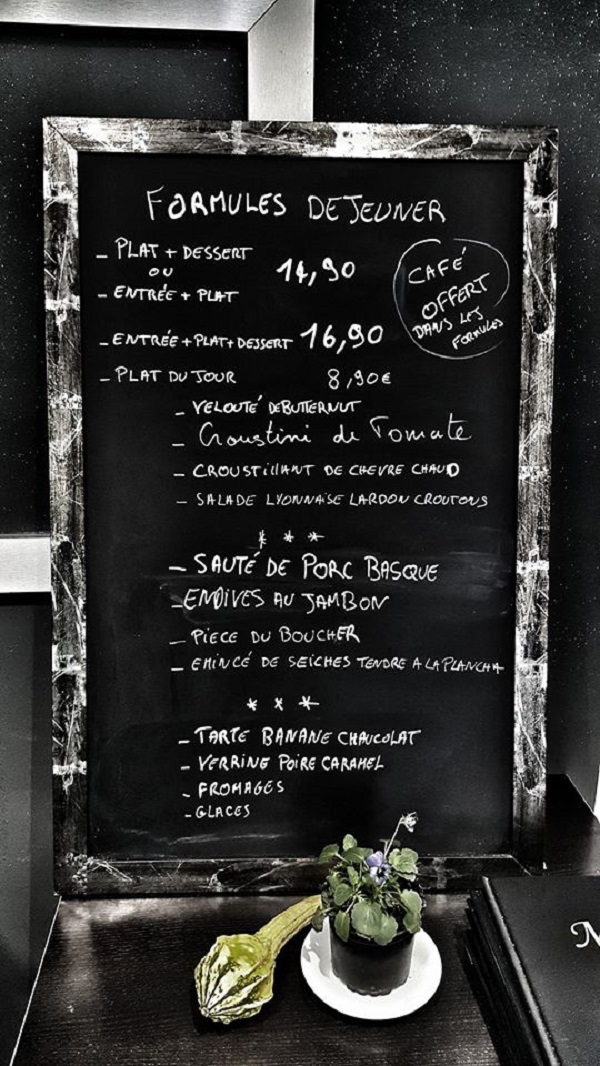 FORMULES DEJEUNER
- PLAT + DESSERT
OU
14,90
- ENTRÉE + PLAT
CAFÉ
OFFERT
DANS LES
FORMULES
- ENTRÉE + PLAT + DESSERT 16,90
- PLAT DU JOUR 8,90€
- VELOUTÉ DE BUTTERNUT
- Croustini de Tomate
- CROUSTILLANT DE CHEVRE CHAUD
- SALADE LYONNAISE LARDON CROUTONS
* * *
- SAUTÉ DE PORC BASQUE
- ENDIVES AU JAMBON
- PIECE DU BOUCHER
- EMINCÉ DE SEICHES TENDRE A LA PLANCHA
* * *
- TARTE BANANE CHAUCOLAT
- VERRINE POIRE CARAMEL
- FROMAGES
- GLACES